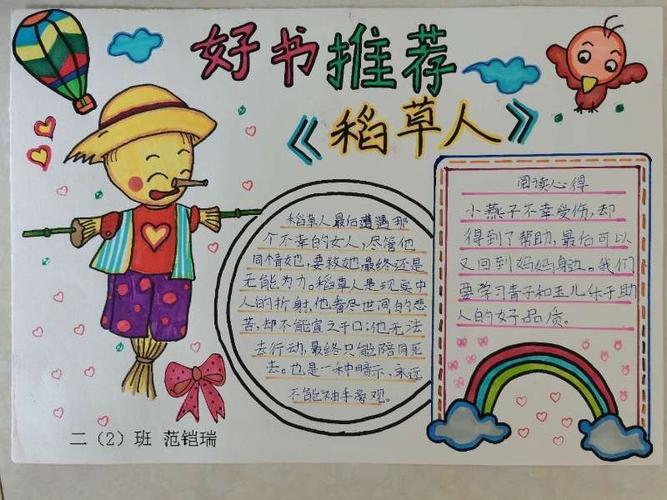 好书推荐
《稻草人》
稻草人最后遭遇那
个不幸的女人，尽管他
同情她，要救她最终还是
无能为力。稻草人是现实中
人的折射，他看尽世间的悲
苦，却不能宣之于口；他无法
去行动，最终只能陪同死
去。也是一种暗示，永远
不能袖手旁观。
阅读心得
小燕子不幸受伤，却
得到了帮助，最后可以
又回到妈妈身边。我们
要学习青子和玉儿乐于助
人的好品质。
二（2）班 范铠瑞